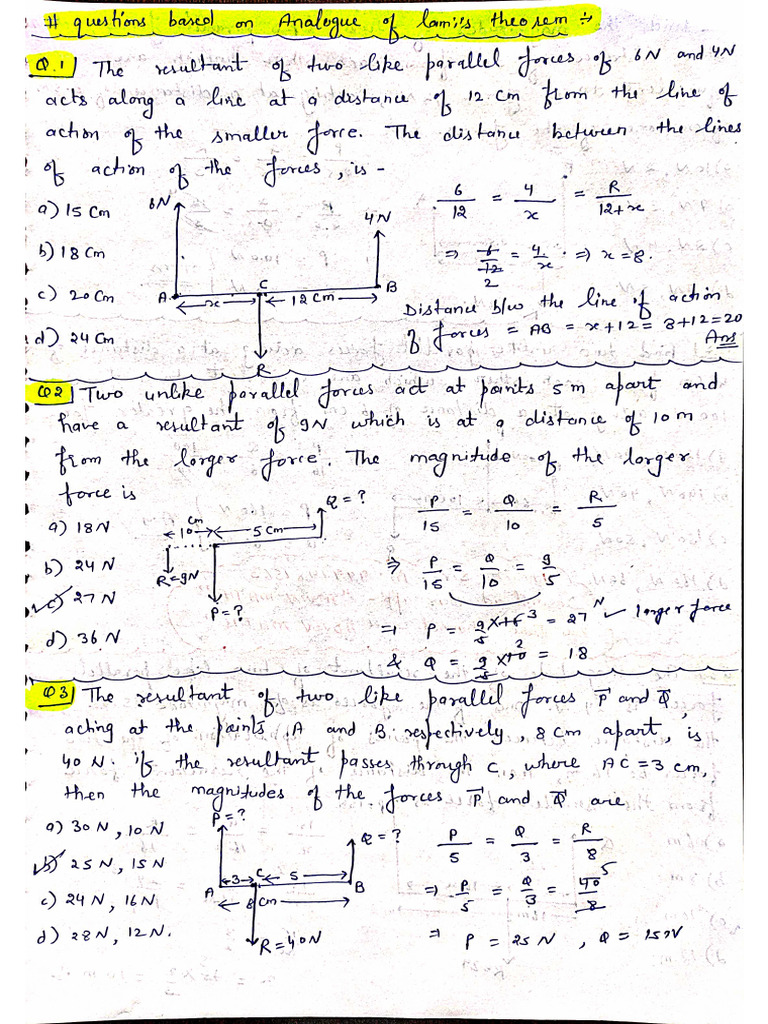 # questions based on Analogue of lami's theorem :-
Q.1 The resultant of two like parallel forces of 6N and 4N
acts along a line at a distance of 12 cm from the line of
action of the smaller force. The distance between the lines
of action of the forces, is -
a) 15 Cm
b) 18 Cm
c) 20 Cm
d) 24 Cm
6N
4N
A
C
B
x
12 cm
R
6/12 = 4/x = R/12+x
⇒ 6/12 = 4/x ⇒ x = 8.
2
Distance b/w the line of action
of forces = AB = x+12 = 8+12 = 20
Ans
Q2 Two unlike parallel forces act at points 5 m apart and
have a resultant of 9N which is at a distance of 10 m
from the larger force. The magnitude of the larger
force is
a) 18 N
b) 24 N
c) 27 N
d) 36 N
Q = ?
10 cm
5 cm
R = 9N
P = ?
P/15 = Q/10 = R/5
⇒ P/15 = Q/10 = 9/5
⇒ P = 9/5 × 15 3 = 27 N ✓ larger force
& Q = 9/5 × 10 2 = 18
Q3 The resultant of two like parallel forces P⃗ and Q⃗,
acting at the points A and B respectively, 8 cm apart, is
40 N. if the resultant passes through C, where AC = 3 cm,
then the magnitudes of the forces P⃗ and Q⃗ are
a) 30 N, 10 N
b) 25 N, 15 N
c) 24 N, 16 N
d) 28 N, 12 N.
P = ?
Q = ?
A
3
C
5
B
8 cm
R = 40N
P/5 = Q/3 = R/8
⇒ P/5 = Q/3 = 40/8 5
⇒ P = 25 N, Q = 15 N